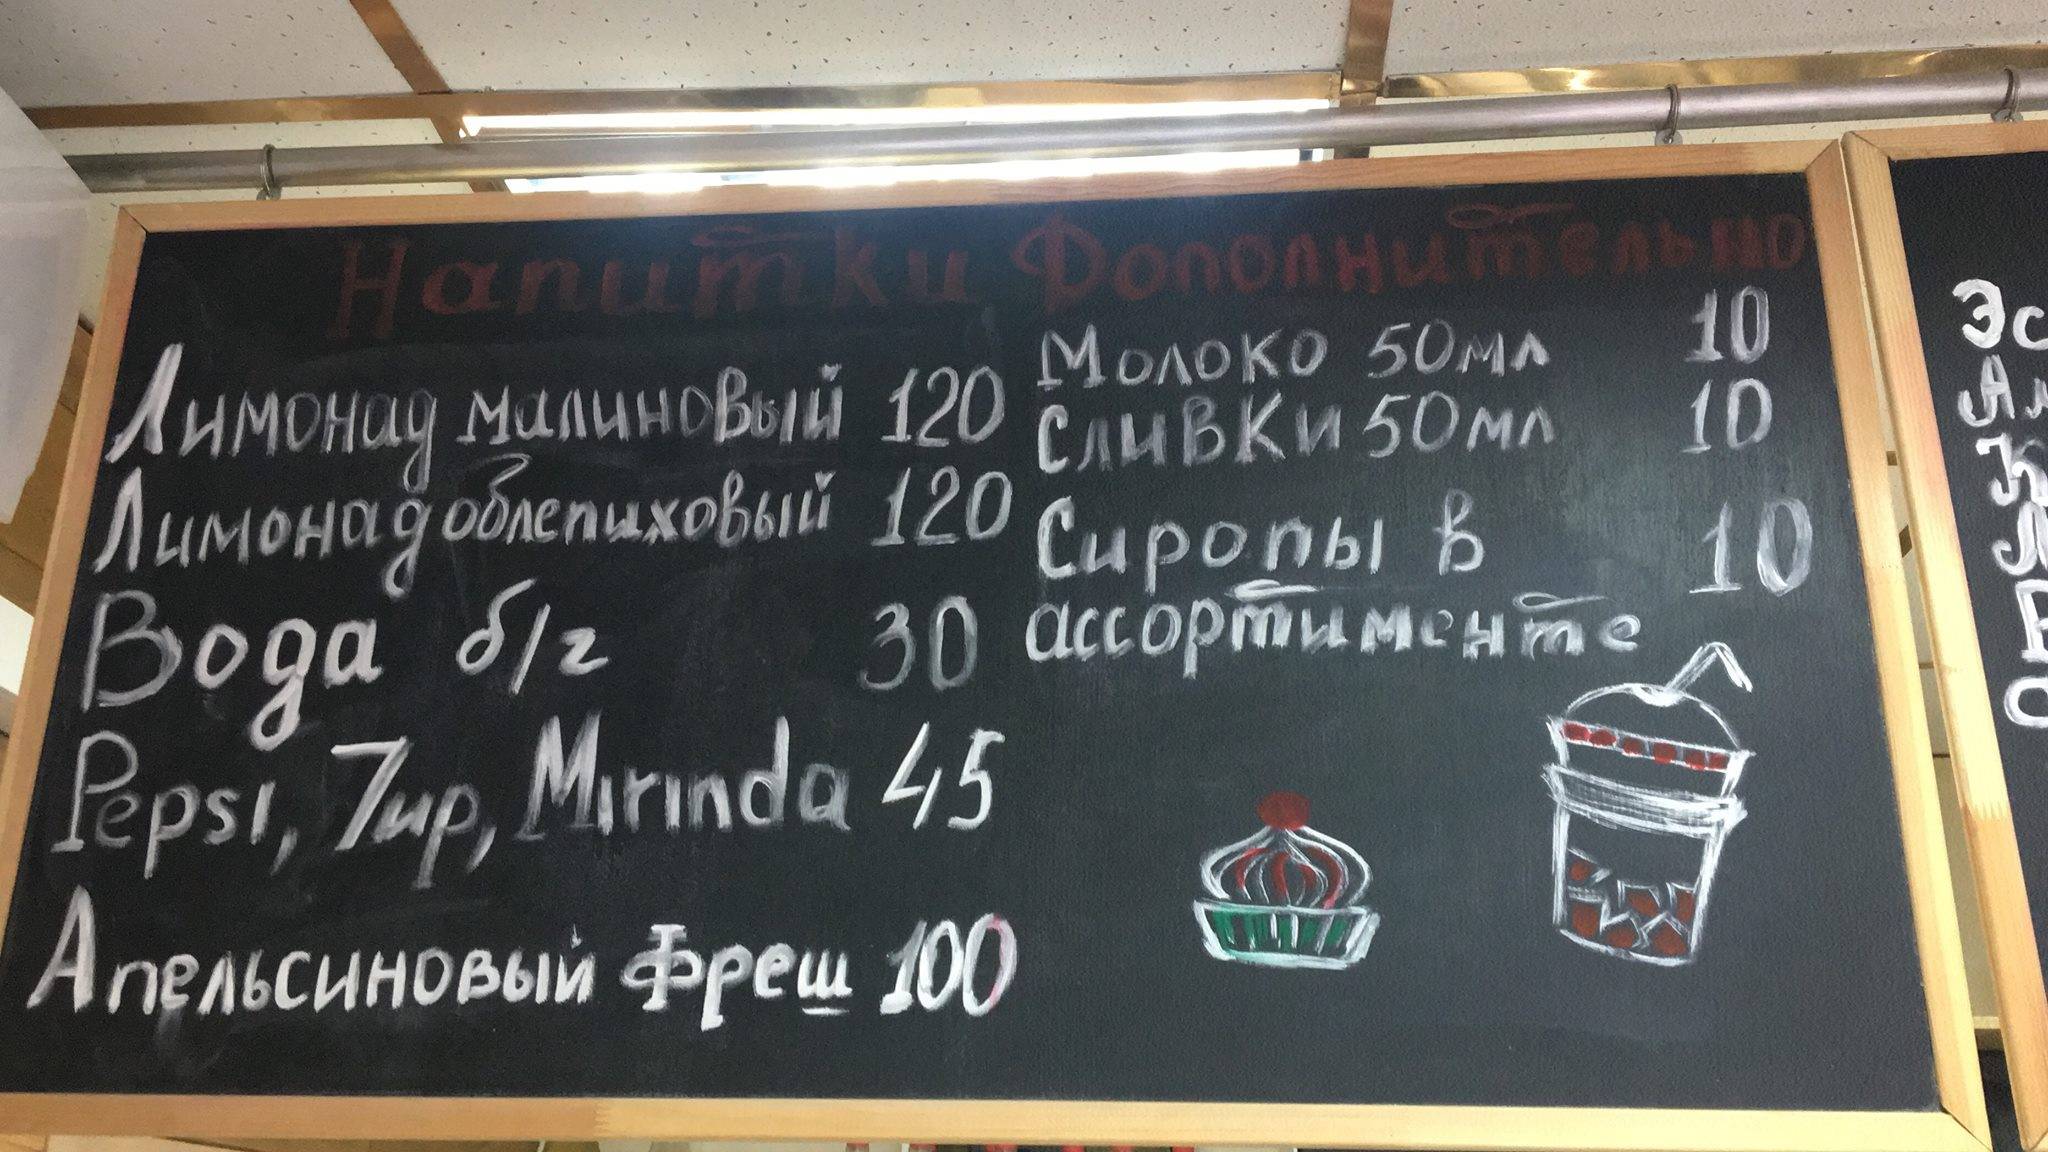 Напитки
Лимонад малиновый 120
Лимонад облепиховый 120
Вода б/г 30
Pepsi, 7up, Mirinda 45
Апельсиновый Фреш 100
Дополнительно
Молоко 50мл 10
Сливки 50мл 10
Сиропы в 10
ассортименте